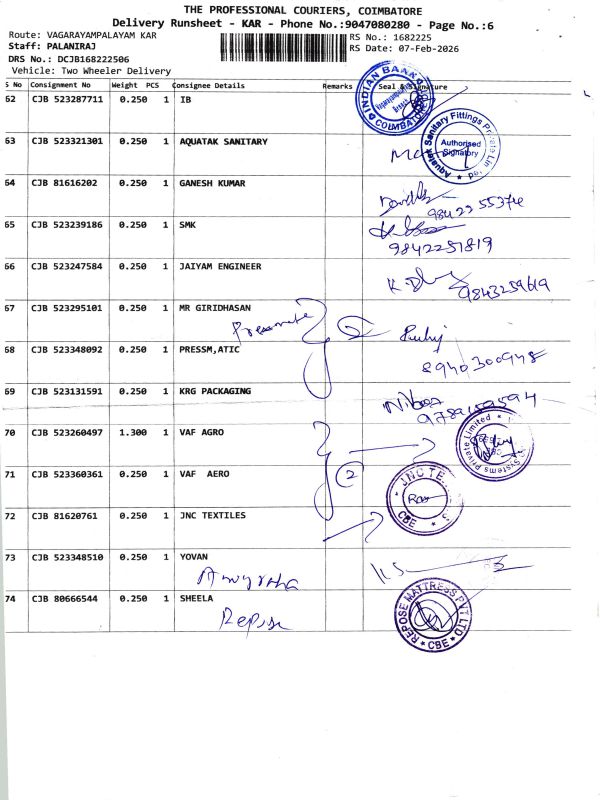 THE PROFESSIONAL COURIERS, COIMBATORE
Delivery Runsheet - KAR - Phone No.:9047080280 - Page No.:6
Route: VAGARAYAMPALAYAM KAR
RS No.: 1682225
Staff: PALANIRAJ
RS Date: 07-Feb-2026
DRS No.: DCJB168222506
Vehicle: Two Wheeler Delivery
S No Consignment No Weight PCS Consignee Details Remarks Seal & Signature
62 CJB 523287711 0.250 1 IB
INDIAN BANK
COIMBATORE
63 CJB 523321301 0.250 1 AQUATAK SANITARY
Aquatak Sanitary Fittings Private Limited
Authorised
Signatory
64 CJB 81616202 0.250 1 GANESH KUMAR
9842255374
65 CJB 523239186 0.250 1 SMK
9842251819
66 CJB 523247584 0.250 1 JAIYAM ENGINEER
9843259619
67 CJB 523295101 0.250 1 MR GIRIDHASAN
Pressmatic 2
68 CJB 523348092 0.250 1 PRESSM,ATIC
8940300948
69 CJB 523131591 0.250 1 KRG PACKAGING
9789159594
70 CJB 523260497 1.300 1 VAF AGRO
Systems Private Limited
71 CJB 523360361 0.250 1 VAF AERO
2
JNC TE
CBE
72 CJB 81620761 0.250 1 JNC TEXTILES
73 CJB 523348510 0.250 1 YOVAN
74 CJB 80666544 0.250 1 SHEELA
Repose
REPOSE MATTRESS PVT LTD
CBE